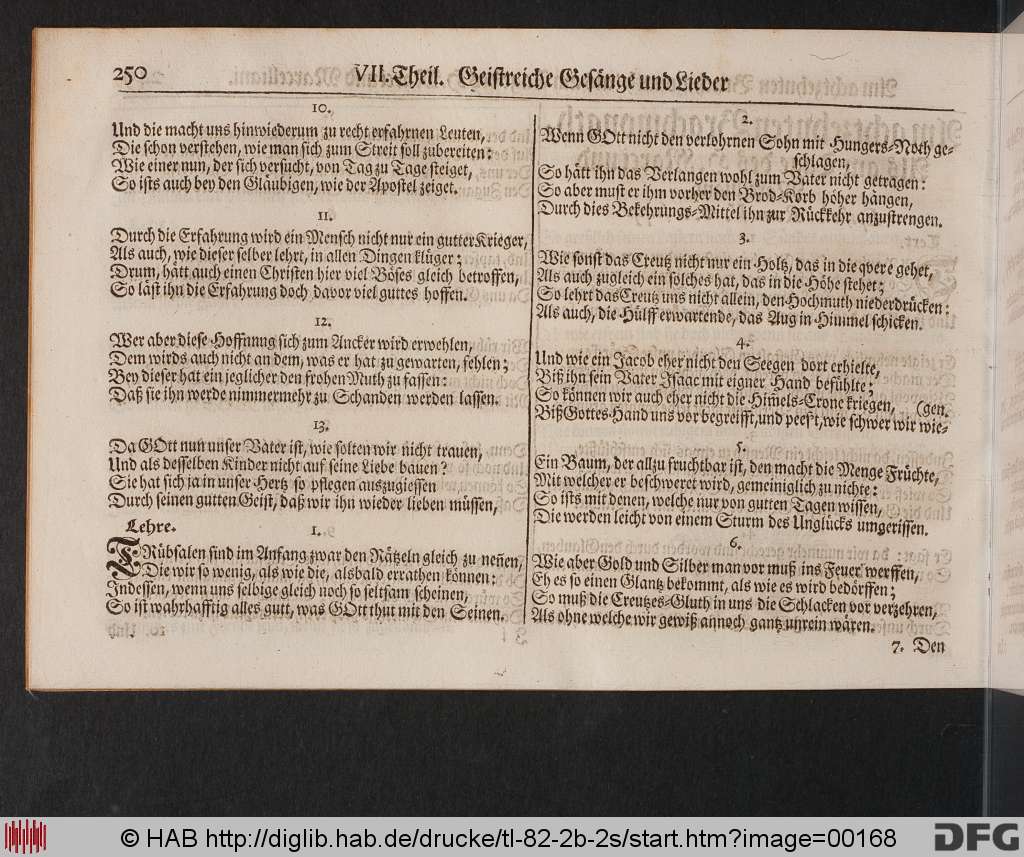 250 VII. Theil. Geistreiche Gesänge und Lieder
10.
Und die macht uns hinwiederum zu recht erfahrnen Leuten,
Die schon verstehen, wie man sich zum Streit soll zubereiten:
Wie einer nun, der sich versucht, von Tag zu Tage steiget,
So ists auch bey den Gläubigen, wie der Apostel zeiget.
11.
Durch die Erfahrung wird ein Mensch nicht nur ein gutter Krieger,
Als auch, wie dieser selber lehrt, in allen Dingen klüger:
Drum, hätt auch einen Christen hier viel Böses gleich betroffen,
So läst ihn die Erfahrung doch davor viel guttes hoffen.
12.
Wer aber diese Hoffnung sich zum Ancker wird erwehlen,
Dem wirds auch nicht an dem, was er hat zu gewarten, fehlen;
Bey dieser hat ein jeglicher den frohen Muth zu fassen:
Daß sie ihn werde nimmermehr zu Schanden werden lassen.
13.
Da GOtt nun unser Vater ist, wie solten wir nicht trauen,
Und als desselben Kinder nicht auf seine Liebe bauen?
Sie hat sich ja in unser Hertz so pflegen auszugiessen
Durch seinen gutten Geist, daß wir ihn wieder lieben müssen,
Lehre.
1.
TRübsalen sind im Anfang zwar den Rätzeln gleich zu neñen,
Die wir so wenig, als wie die, alsbald errathen können:
Indessen, wenn uns selbige gleich noch so seltsam scheinen,
So ist wahrhafftig alles gutt, was GOtt thut mit den Seinen.
2.
Wenn GOtt nicht den verlohrnen Sohn mit Hungers-Noth ge-
schlagen,
So hätt ihn das Verlangen wohl zum Vater nicht getragen:
So aber must er ihm vorher den Brod-Korb höher hängen,
Durch dies Bekehrungs-Mittel ihn zur Rückkehr anzustrengen.
3.
Wie sonst das Creutz nicht nur ein Holtz, das in die qvere gehet,
Als auch zugleich ein solches hat, das in die Höhe stehet;
So lehrt das Creutz uns nicht allein, den Hochmuth niederdrücken:
Als auch, die Hülff erwartende, das Aug in Himmel schicken.
4.
Und wie ein Jacob eher nicht den Seegen dort erhielte,
Biß ihn sein Vater Isaac mit eigner Hand befühlte;
So können wir auch eher nicht die Him̃els-Crone kriegen, (gen.
Biß Gottes Hand uns vor begreifft, und preßt, wie schwer wir wie-
5.
Ein Baum, der allzu fruchtbar ist, den macht die Menge Früchte,
Mit welcher er beschweret wird, gemeiniglich zu nichte:
So ists mit denen, welche nur von gutten Tagen wissen,
Die werden leicht von einem Sturm des Unglücks umgerissen.
6.
Wie aber Gold und Silber man vor muß ins Feuer werffen,
Eh es so einen Glantz bekommt, als wie es wird bedörffen;
So muß die Creutzes-Gluth in uns die Schlacken vor verzehren,
Als ohne welche wir gewiß annoch gantz unrein wären.
7. Den
© HAB http://diglib.hab.de/drucke/tl-82-2b-2s/start.htm?image=00168
DFG